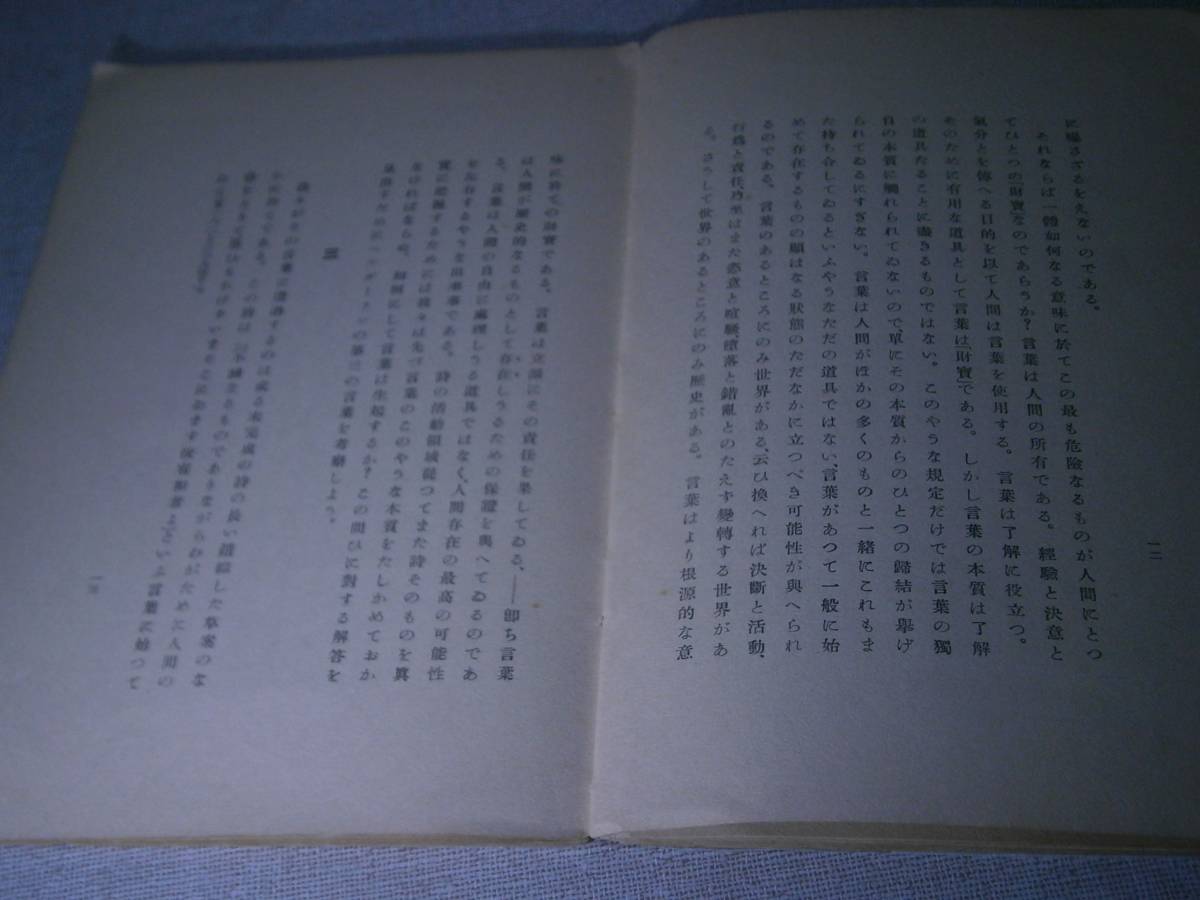 に曝さざるをえないのである。
それならば一體如何なる意味に於てこの最も危險なるものが人間にとつ
てひとつの「財寶」なのであらうか？言葉は人間の所有である。經驗と決意と
氣分とを傳へる目的を以て人間は言葉を使用する。言葉は了解に役立つ。
そのために有用な道具として言葉は「財寶」である。しかし言葉の本質は了解
の道具たることに盡きるものではない。このやうな規定だけでは言葉の獨
自の本質に觸れられてゐないので、單にその本質からのひとつの歸結が擧げ
られてゐるにすぎない。言葉は人間がほかの多くのものと一緒にこれもま
た持ち合してゐるといふやうなただの道具ではない、言葉があつて一般に始
めて存在するものの顯はなる狀態のただなかに立つべき可能性が與へられ
るのである。言葉のあるところにのみ世界がある、云ひ換へれば決斷と活動、
行爲と責任、乃至はまた恣意と喧騷、墮落と錯亂とのたえず變轉する世界があ
る。さうして世界のあるところにのみ歷史がある。言葉はより根源的な意
一二
味に於ての財寶である。言葉は立派にその責任を果してゐる、――卽ち言葉
は人間が歷史的なるものとして存在しうるための保證を與へてゐるのであ
る。言葉は人間の自由に處理しうる道具ではなく、人間存在の最高の可能性
を左右するやうな出來事である。詩の活動領域從つてまた詩そのものを眞
實に把握するためには我々は先づ言葉のこのやうな本質をたしかめておか
なければならぬ。如何にして言葉は生起するか？この問ひに對する解答を
見出すためにヘルダーリンの第三の言葉を考察しよう。
三
我々がこの言葉に遭遇するのは或る未完成の詩の長い錯綜した草案のな
かに於てである。この詩は
といふ言葉に始つて